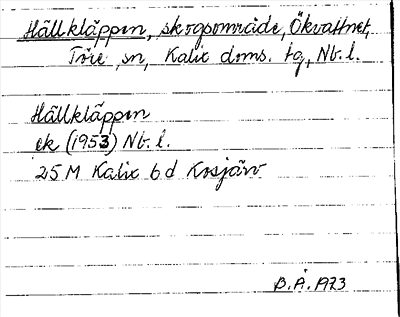 Hällkläppen, skogsområde, Ökvattnet,
Töre sn, Kalix doms. tg, Nb. l.
Hällkläppen
ek (1953) Nb. l.
25 M Kalix 6d Kosjärv
B.Å. 1973